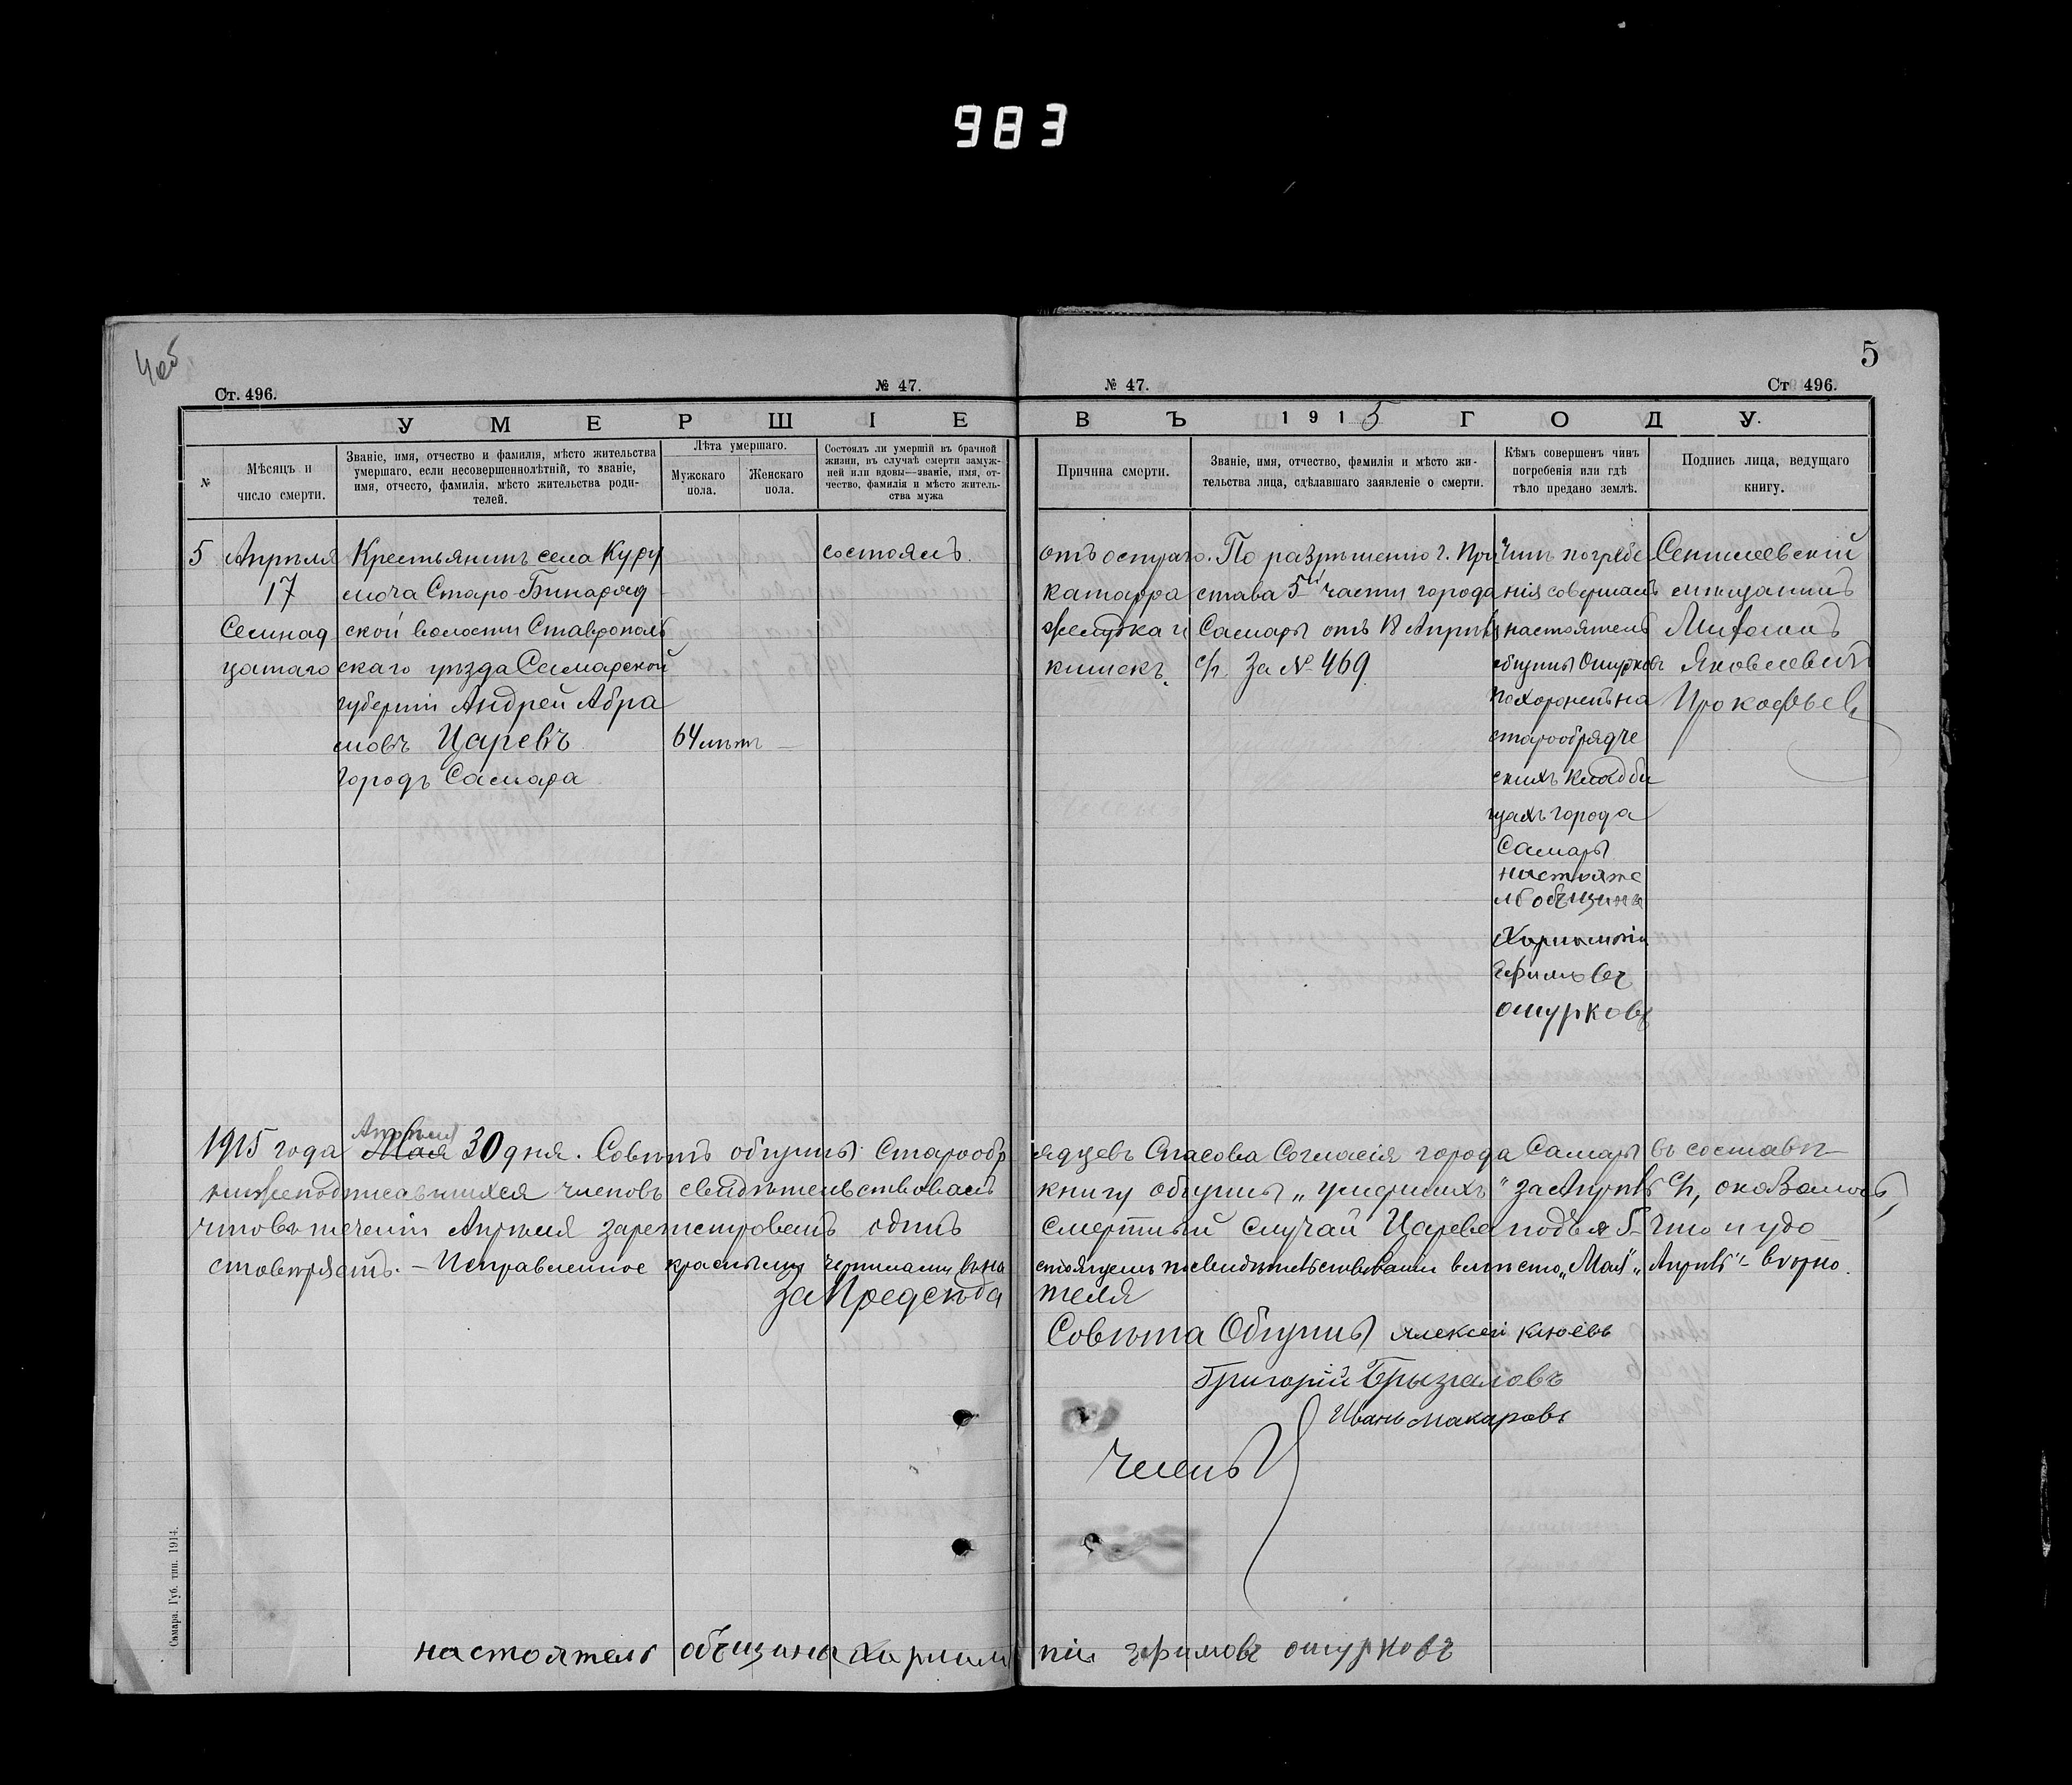 983
5
Ст. 496.
№ 47.
№ 47.
Ст 496.
УМЕРШІЕ
ВЪ 1915 ГОДУ.
№
Мѣсяцъ и
число смерти.
Званіе, имя, отчество и фамилія, мѣсто жительства
умершаго, если несовершеннолѣтній, то званіе,
имя, отчесто, фамилія, мѣсто жительства роди-
телей.
Лѣта умершаго.
Мужскаго
пола.
Женскаго
пола.
Состоялъ ли умершій въ брачной
жизни, въ случаѣ смерти замуж-
ней или вдовы—званіе, имя, от-
чество, фамилія и мѣсто житель-
ства мужа
Причина смерти.
Званіе, имя, отчество, фамилія и мѣсто жи-
тельства лица, сдѣлавшаго заявленіе о смерти.
Кѣмъ совершенъ чинъ
погребенія или гдѣ
тѣло предано землѣ.
Подпись лица, ведущаго
книгу.
5
Апрѣля
17
Семнад
цатаго
Крестьянинъ села Куру
моча Старо-Бинарад
ской волости Ставрополь
скаго уѣзда Самарской
губерніи Андрей Абра
мовъ Царевъ
городъ Самара
64 лѣтъ
состоялъ.
отъ остраго
катарра
желудка и
кишекъ.
По разрѣшенію г. При
става 5й части города
Самары отъ 18 Апрѣля
с/г. за № 469
Чинъ погребе
нія совершалъ
настоятель
общины Ошурковъ
похороненъ на
старообрядче
скихъ кладби
щахъ города
Самары
настояте
ль общины
Ефимовъ
ошурковъ
мѣщанинъ
Яковлевичъ
Прокофьевъ
1915 года Апрѣля Мая 30 дня. Совѣтъ общины Старообрядцевъ Спасова Согласія города Самары въ составѣ
нижеподписавшихся членовъ свидѣтельствовалъ книгу общины „умершихъ" за Апрѣль с/г, оказалось,
что въ теченіи Апрѣля зарегистрованъ одинъ смертный случай Царева подъ № 5 что и удо
стовѣряетъ. — Исправленное красными чернилами въ настоящемъ посвидѣтельствованіи вмѣсто „Мая" „Апрѣль" – вѣрно.
за Председателя
Совѣта Общины Алексей Клюевъ
Григорій Брызгаловъ
Иванъ Макаровъ
Члены
настоятель общины Ефимовъ ошурковъ
Самара. Губ. тип. 1914.